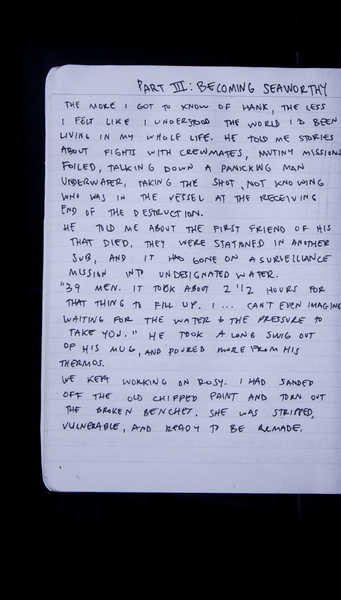 PART III: BECOMING SEAWORTHY
THE MORE I GOT TO KNOW OF HANK, THE LESS
I FELT LIKE I UNDERSTOOD THE WORLD I'D BEEN
LIVING IN MY WHOLE LIFE. HE TOLD ME STORIES
ABOUT FIGHTS WITH CREWMATES, MUTINY MISSIONS
FOILED, TALKING DOWN A PANICKING MAN
UNDERWATER, TAKING THE SHOT, NOT KNOWING
WHO WAS IN THE VESSEL AT THE RECEIVING
END OF THE DESTRUCTION.
HE TOLD ME ABOUT THE FIRST FRIEND OF HIS
THAT DIED. THEY WERE STATIONED IN ANOTHER
SUB, AND IT HAD GONE ON A SURVEILLANCE
MISSION INTO UNDESIGNATED WATER.
"39 MEN. IT TOOK ABOUT 2 1/2 HOURS FOR
THAT THING TO FILL UP. I... CAN'T EVEN IMAGINE
WAITING FOR THE WATER & THE PRESSURE TO
TAKE YOU." HE TOOK A LONG SWIG OUT
OF HIS MUG, AND POURED MORE FROM HIS
THERMOS.
WE KEPT WORKING ON ROSY. I HAD SANDED
OFF THE OLD CHIPPED PAINT AND TORN OUT
THE BROKEN BENCHES. SHE WAS STRIPPED,
VULNERABLE, AND READY TO BE REMADE.